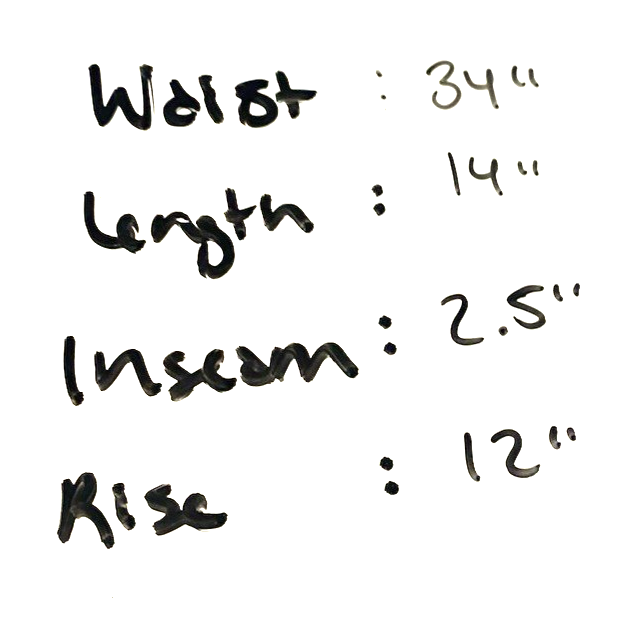 Waist : 34"
Length : 14"
Inseam : 2.5"
Rise : 12"